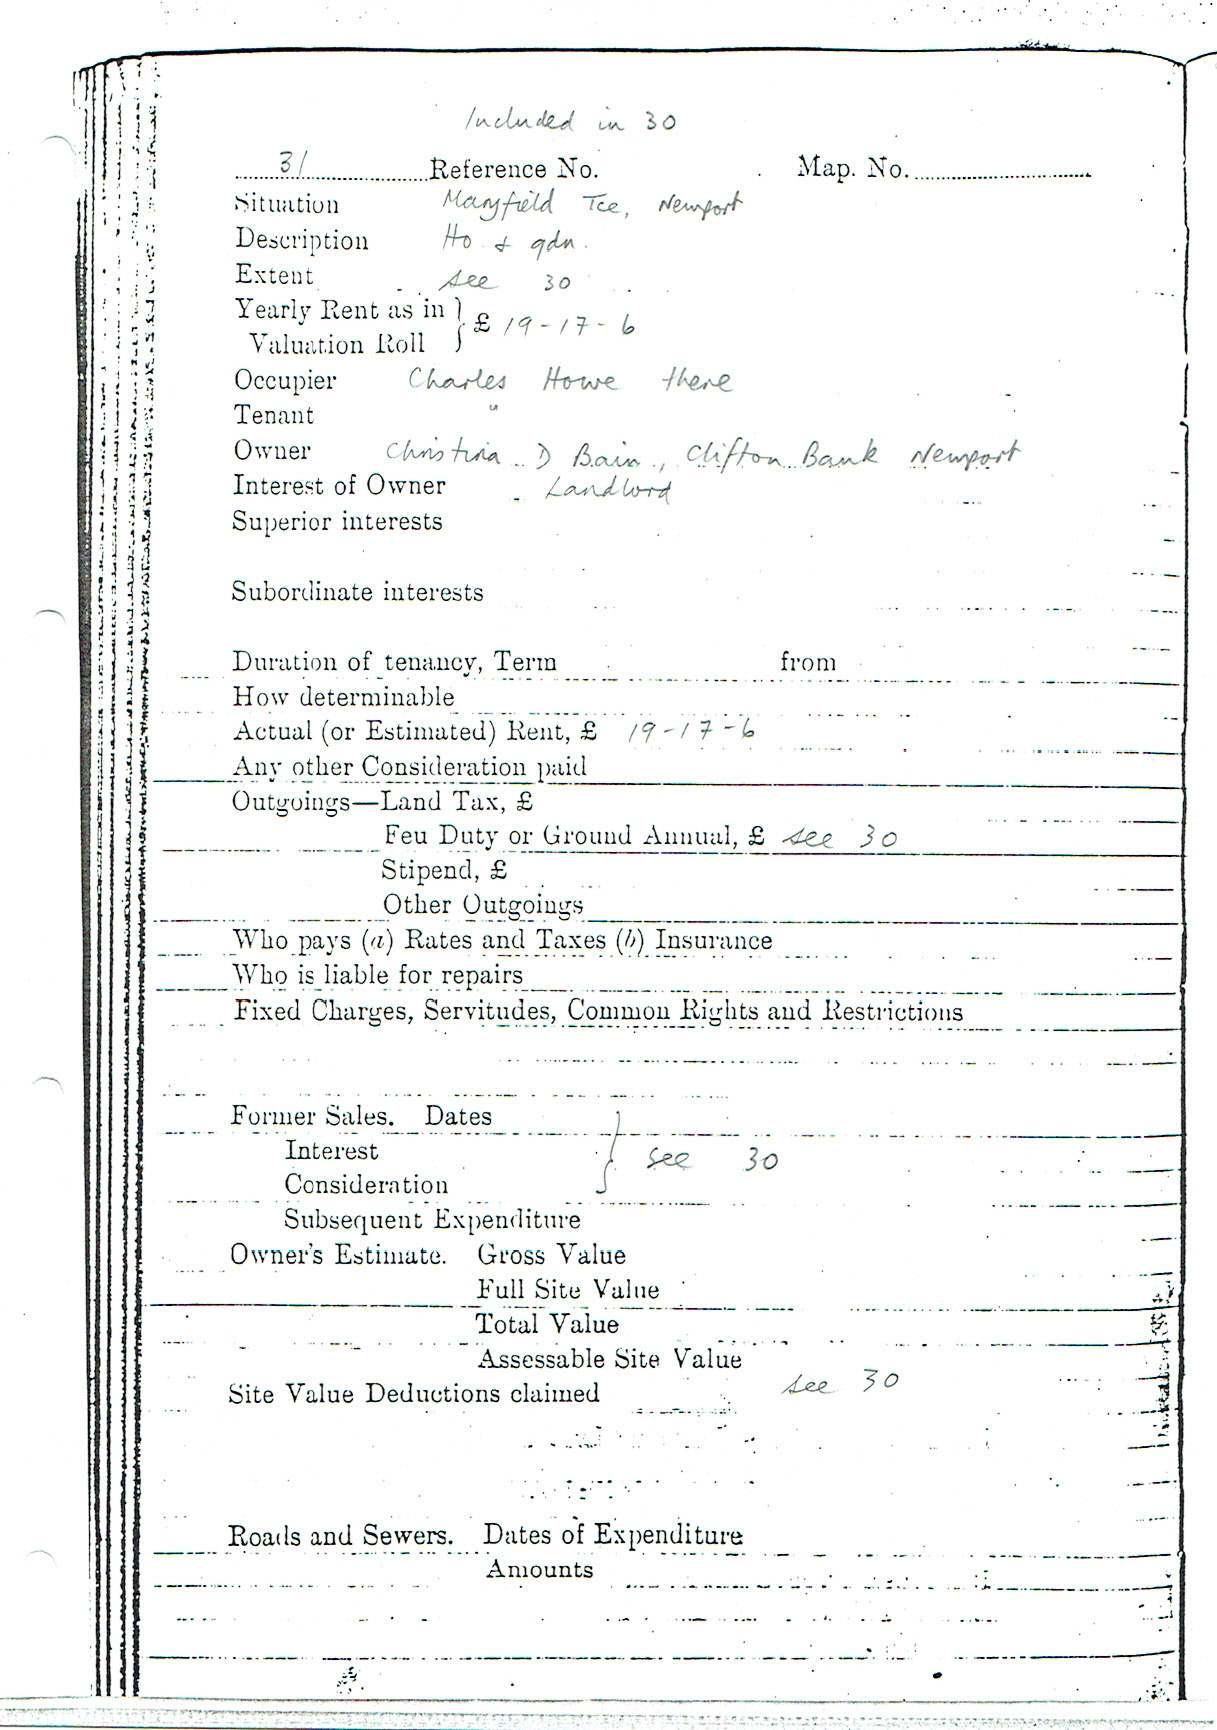 Included in 30
31 Reference No. Map. No.
Situation Maryfield Tce, Newport
Description Ho & gdn.
Extent see 30
Yearly Rent as in
Valuation Roll } £ 19-17-6
Occupier Charles Howe there
Tenant "
Owner Christina D Bain, Clifton Bank Newport
Interest of Owner Landlord
Superior interests
Subordinate interests
Duration of tenancy, Term from
How determinable
Actual (or Estimated) Rent, £ 19-17-6
Any other Consideration paid
Outgoings—Land Tax, £
Feu Duty or Ground Annual, £ see 30
Stipend, £
Other Outgoings
Who pays (a) Rates and Taxes (b) Insurance
Who is liable for repairs
Fixed Charges, Servitudes, Common Rights and Restrictions
Former Sales. Dates
Interest } see 30
Consideration
Subsequent Expenditure
Owner's Estimate. Gross Value
Full Site Value
Total Value
Assessable Site Value
see 30
Site Value Deductions claimed
Roads and Sewers. Dates of Expenditure
Amounts